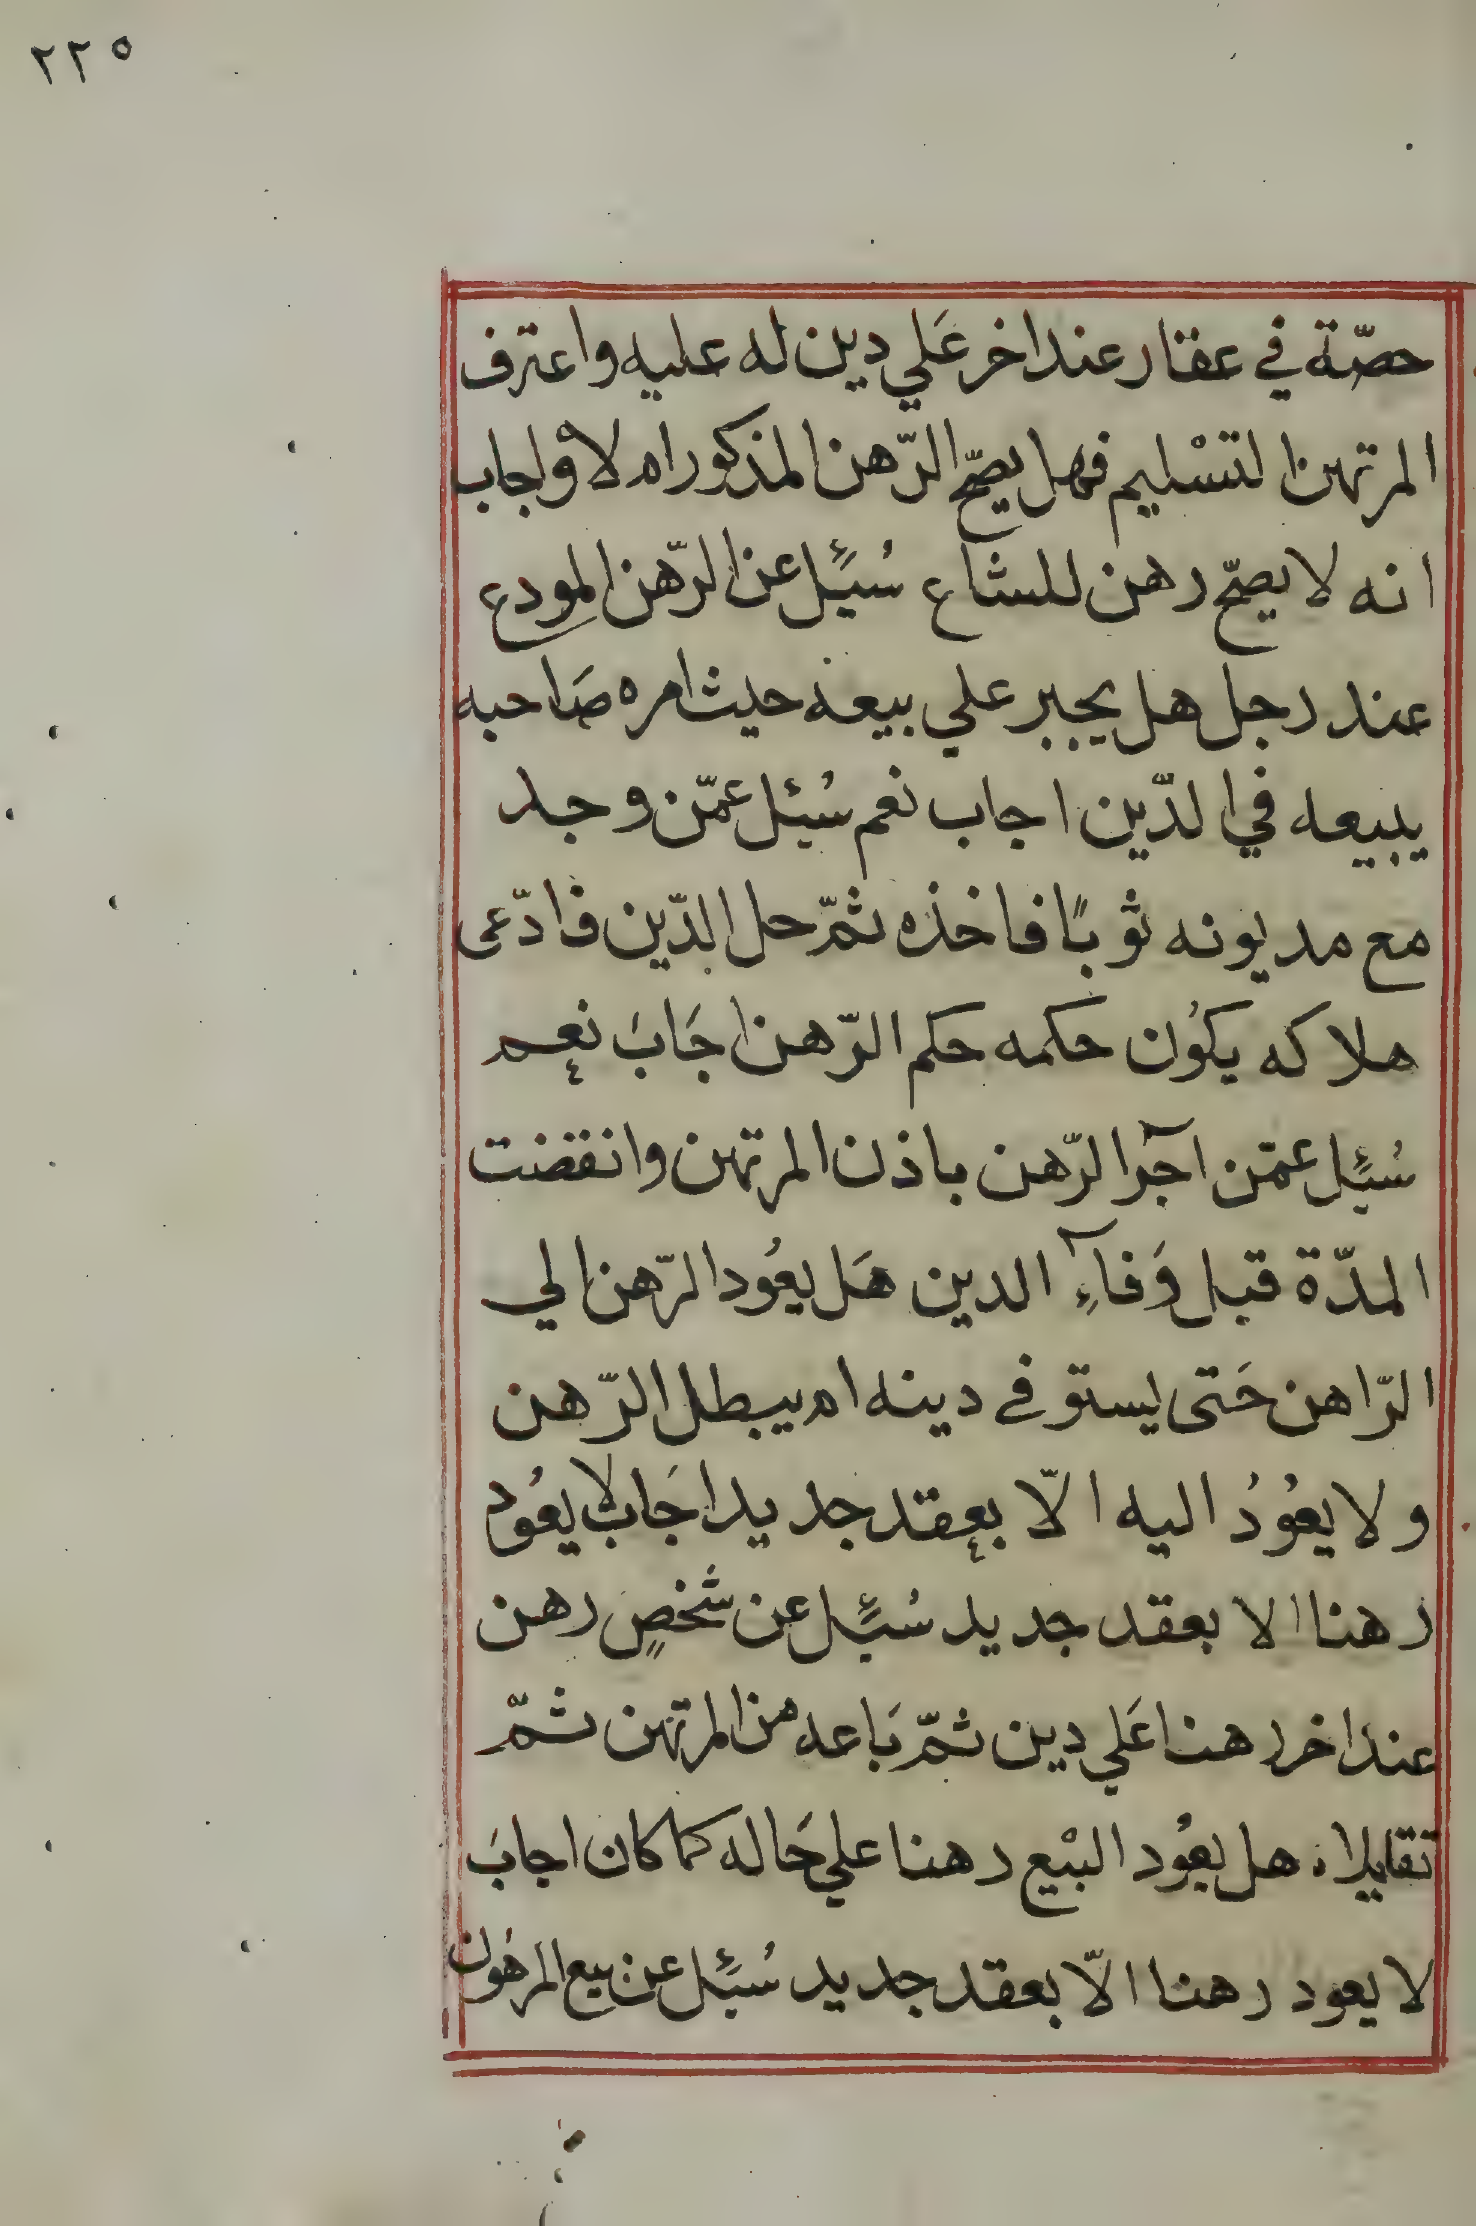 ٢٢٥
حصّة في عقار عند اخر عَلي دين له عليه واعترف
المرتهن التسْليم فهل يصحّ الرّهن المذكور ام لا واجاب
انه لا يصحّ رهن للشاع سُئِل عن الرّهن المودع
عند رجل هل يجبر علي بيعه حيث امره صَاحبه
يبيعه في الدّين اجاب نعم سُئل عمّن وجد
مع مديونه ثوبًا فاخذه ثمّ حل الدّين فادّعى
هلاكه يكوُن حكمه حكم الرّهن اجَابَ نعم
سُئِل عمّن آجر الرّهن باذن المرتهن وانقضت
المدّة قبل وَفآءِ الدين هَل يعُود الرّهن الي
الرّاهن حَتى يستوفي دينه ام يبطل الرّهن
ولا يعُودُ اليه الّا بعقد جديد اجَاب لا يعُود
رهنا الا بعقد جديد سُئِل عن شَخصٍ رهن
عند اخر رهنا عَلي دين ثمّ بَاعه من المرتهن ثمّ
تقايلاه هل يعُود البْيع رهنا علي حَاله كما كان اجابَ
لا يعود رهنا الّا بعقد جديد سُئِل عن بيع المرهُون